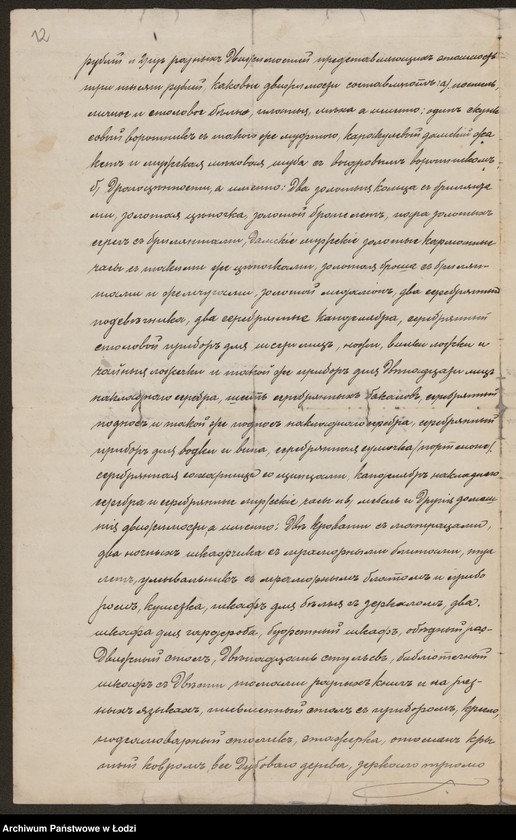 12
рублей и Дер разныхъ Движимостей представляющихъ стоимость
три тысячи рублей, каковые движимости составляютъ: а) постель,
личное и столовое бѣлье, платья, мѣха а именно: одинъ скунк
совый воротникъ съ такою же муфтою, каракулевый дамскій жа
кетъ и мужская мѣховая шуба съ выдровымъ воротникомъ;
б) Драгоцѣнности, а именно: Два золотыя кольца съ брилянта
ми, золотая цѣпочка, золотой браслетъ, пара золотыхъ
серегъ съ брилянтами, Дамскіе мужскіе золотые карманные
часы съ таковыми же цѣпочками, золотая брошь съ брилян-
тами и жемчугами, золотой медаліонъ, два серебряный
подсвѣчника, два серебряные канделябра, серебряный
столовой приборъ для шести лицъ, ножи, вилки ложки и
чайныя ложечки и такой же приборъ для Двѣнадцати лицъ
накладного серебра, шесть серебряныхъ бокаловъ, серебряный
подносъ и такой же подносъ накладного серебра, серебряный
приборъ для водки и вина, серебряная сумочка /портмоне/,
серебряная сахарница со щипцами, канделябръ накладного
серебра и серебряные мужскіе часы и в) мебель и Другія домаш
нія движимости, а именно: Двѣ кровати съ матрацами,
два ночныхъ шкафчика съ мраморными блатами, туа
летъ, умывальникъ съ мраморнымъ блатомъ и прибо
ромъ, кушетка, шкафъ для бѣлья съ зеркаломъ, два
шкафа для гардероба, буфетный шкафъ, обѣдный раз-
Движный столъ, Двѣнадцать стульевъ, библіотечный
шкафъ съ Двѣсти томами разныхъ книгъ и на раз-
ныхъ языкахъ, письменный столъ съ приборомъ, кресло,
подсамоварный столикъ, этажерка, отоманъ кры
тый ковромъ, все Дубоваго дерева, зеркало трюмо
Archiwum Państwowe w Łodzi